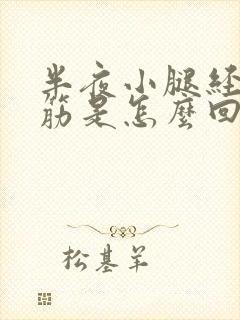 半夜小腿经
筋是怎麼回
松基羊